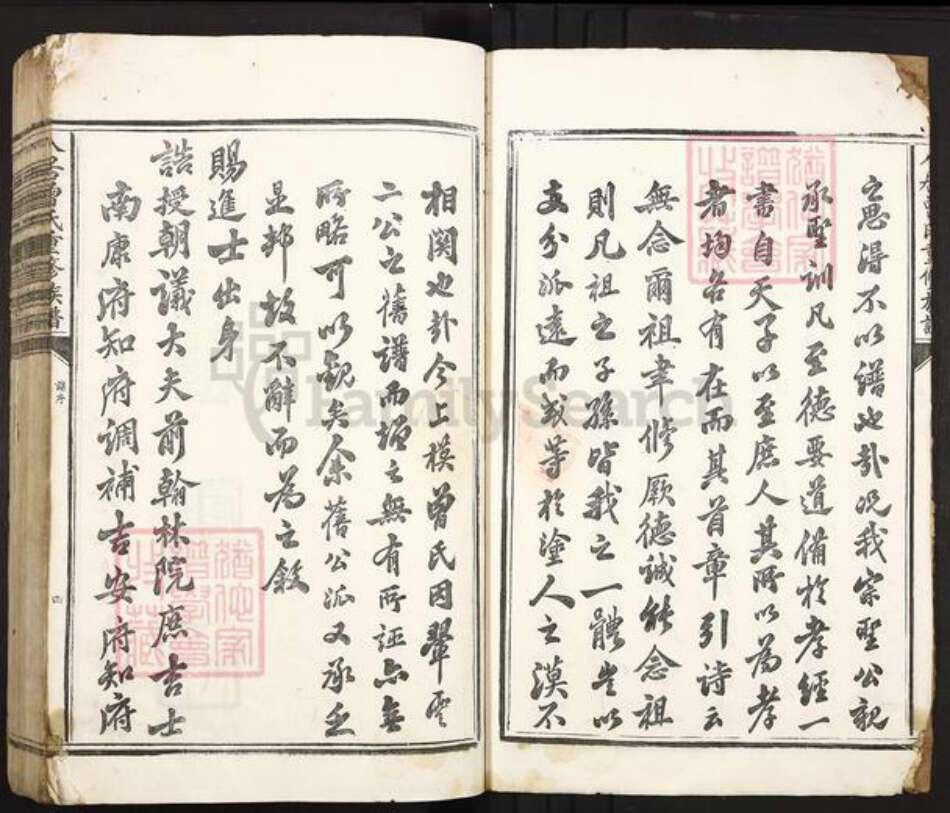 之思得不以譜也哉况我宗聖公親
承聖訓凡至德要道備於孝經一
書自天子以至庶人其所以為孝
者均各有在而其首章引詩云
無念爾祖聿修厥德誠能念祖
則凡祖之子孫皆我之一體豈以
支分派遠而或等於塗人之漠不
相関也哉今上模曾氏因鞏
二公之舊譜而增之無有所誣亦無
所略可以觀矣余舊公派又承乏
是邦故不辭而為之敘
賜進士出身
誥授朝議大夫前翰林院庶吉士
南康府知府調補吉安府知府
曾氏重修族譜
譜序
四
FamilySearch